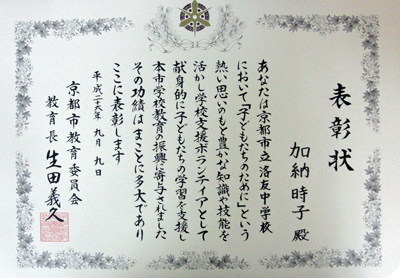 表彰状
加納 時子 殿
あなたは京都市立洛友中学校
において「子どもたちのために」という
熱い思いのもと豊かな知識や技能を
活かし学校支援ボランティアとして
献身的に子どもたちの学習を支援し
本市学校教育の振興に寄与されました
その功績はまことに多大であり
ここに表彰します
平成二十六年 九月 九日
京都市教育委員会
教育長 生田義久